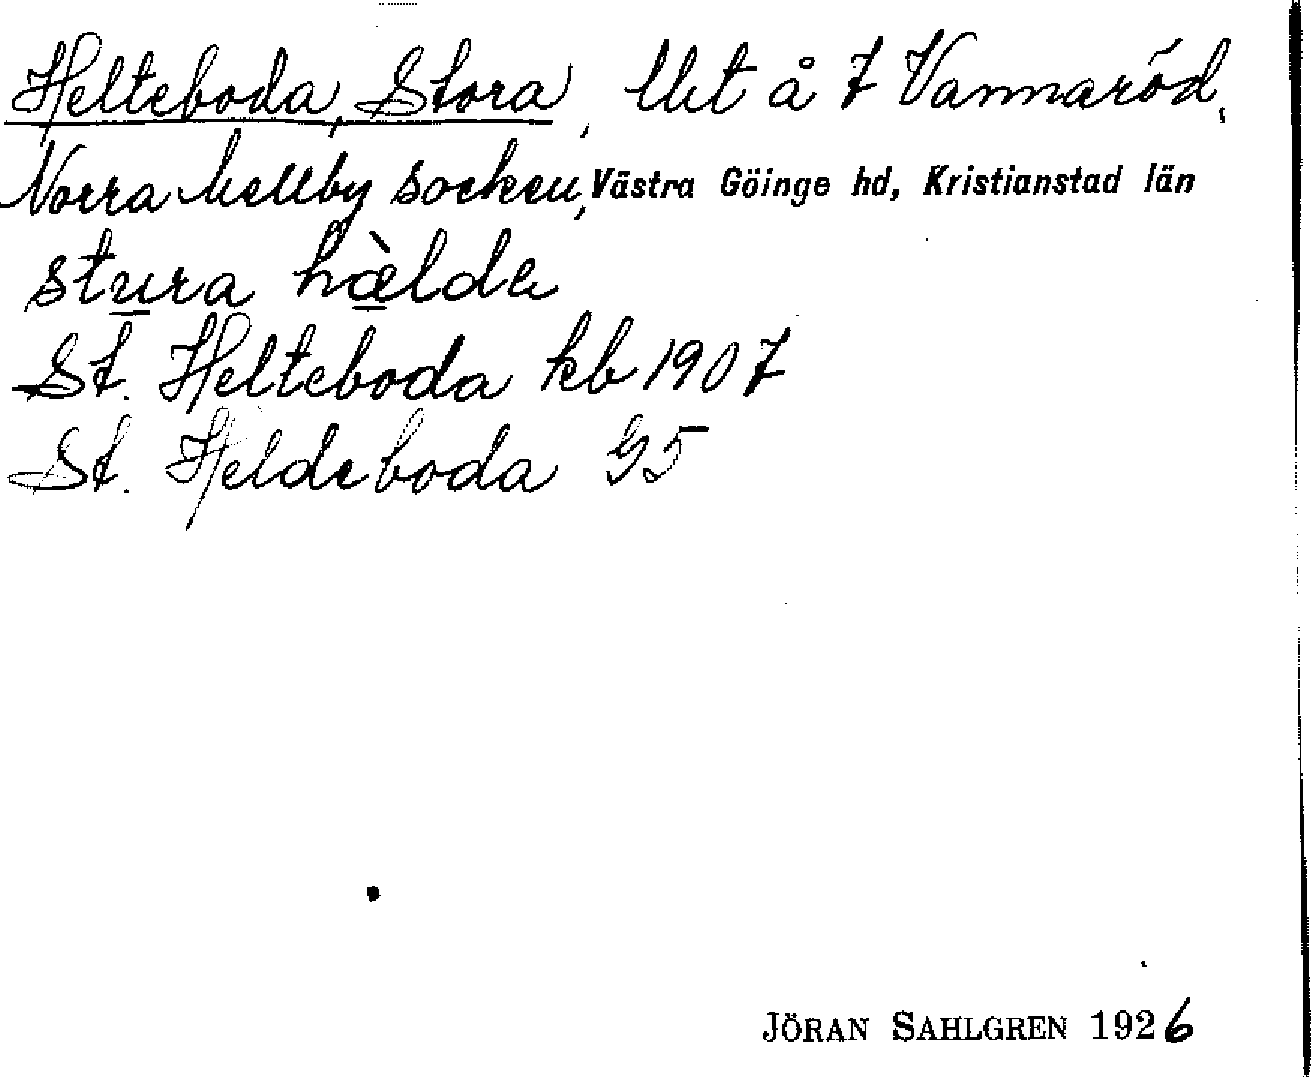 Helteboda, Stora, Utt å 7 Vannaröd,
Norra Mellby socken, Västra Göinge hd, Kristianstad län
stura hàlda
St. Helteboda kb 1907
St. Heldeboda G5
JÖRAN SAHLGREN 1926